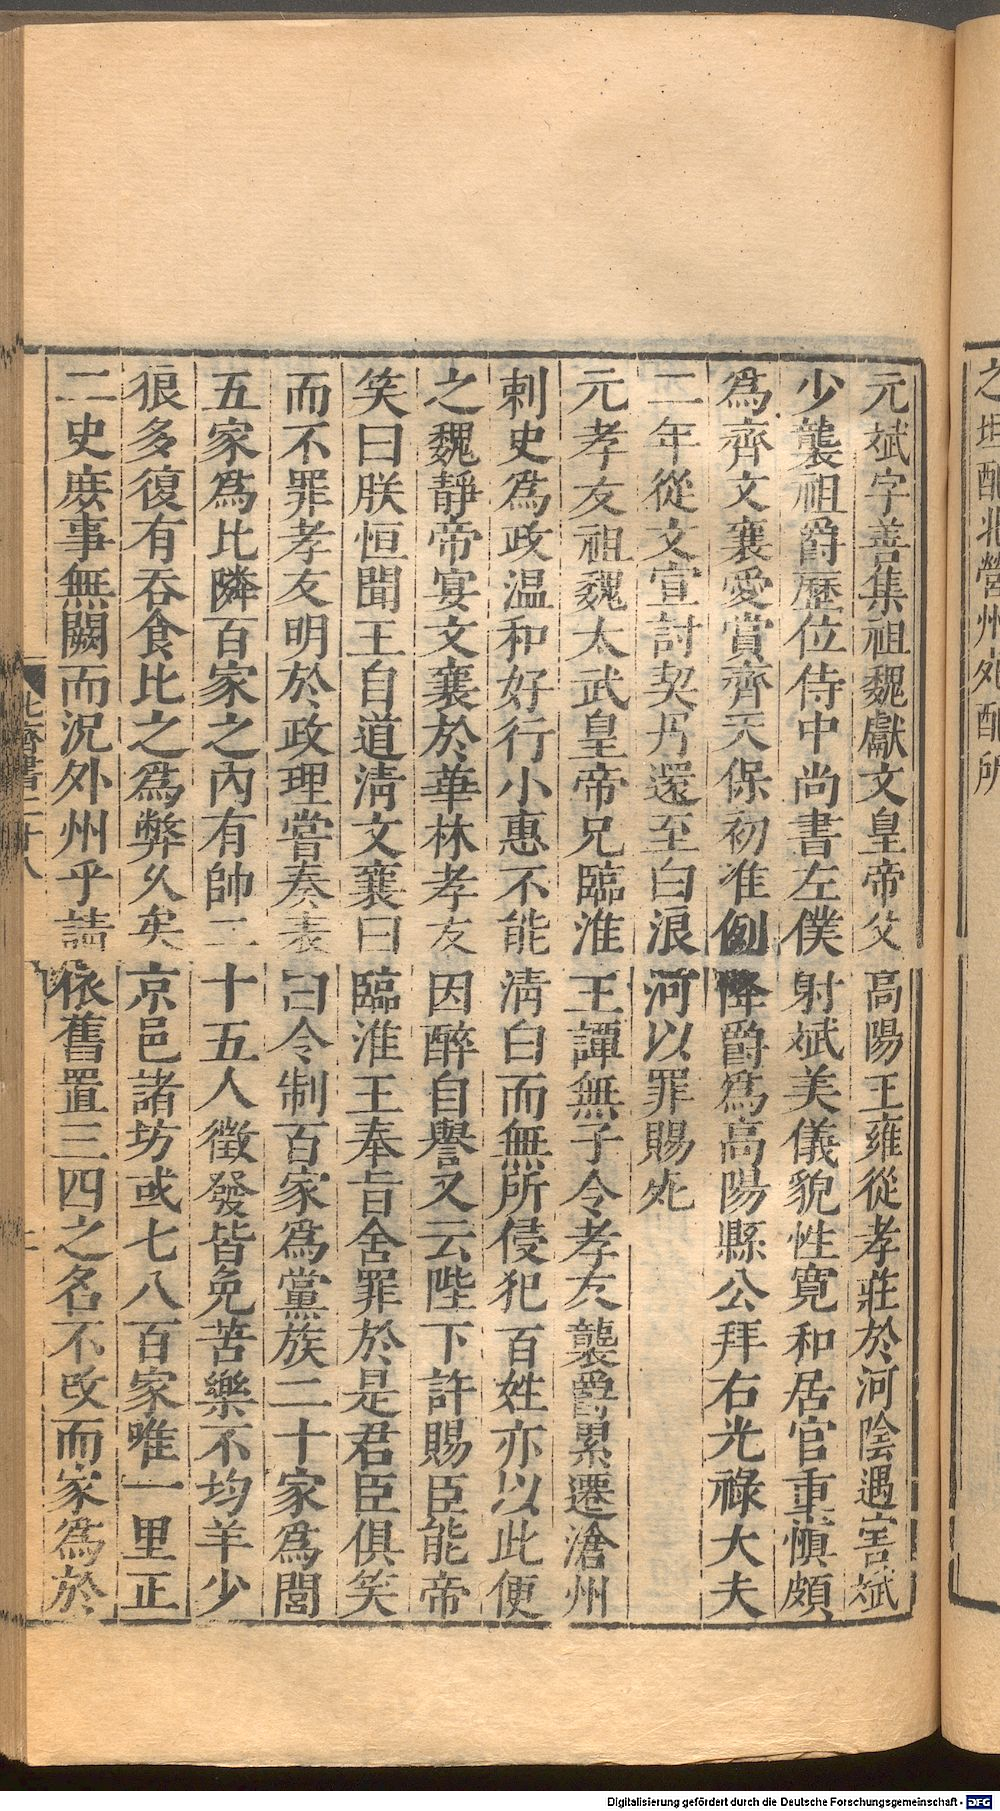 之坦配北營州死配所
元斌字善集祖魏獻文皇帝父高陽王雍從孝莊於河陰遇害斌
少襲祖爵歷位侍中尚書左僕射斌美儀貌性寬和居官重慎頗
爲齊文襄愛賞齊天保初准例降爵爲高陽縣公拜右光祿大夫
二年從文宣討契丹還至白浪河以罪賜死
元孝友祖魏太武皇帝兄臨淮王譚無子令孝友襲爵累遷滄州
刺史爲政温和好行小惠不能清白而無所侵犯百姓亦以此便
之魏靜帝宴文襄於華林孝友因醉自譽又云陛下許賜臣能帝
笑曰朕恒聞王自道清文襄曰臨淮王奉旨舍罪於是君臣俱笑
而不罪孝友明於政理嘗奏表曰令制百家爲黨族二十家爲閭
五家爲比隣百家之內有帥二十五人徵發皆免苦樂不均羊少
狼多復有吞食比之爲弊久矣京邑諸坊或七八百家唯一里正
二史庶事無闕而況外州乎請依舊置三四之名不改而家爲於
北齊書二十八
Digitalisierung gefördert durch die Deutsche Forschungsgemeinschaft - DFG